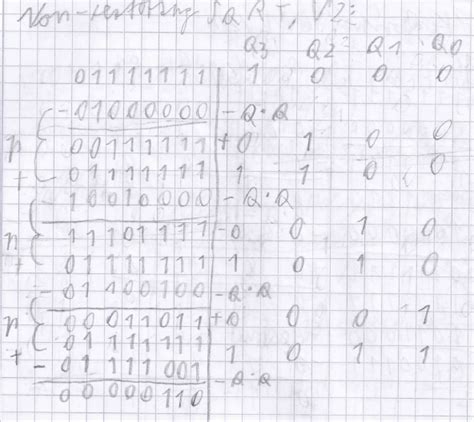 Non-restoring SQRT, V2:
Q3 Q2 Q1 Q0
01111111 1 0 0 0
-01000000 -Q·Q
00111111 +0 1 0 0
01111111 1 1 0 0
-10010000 -Q·Q
11101111 -0 0 1 0
01111111 1 0 1 0
-01100100 -Q·Q
00011011 +0 0 0 1
01111111 1 0 1 1
-01111001 -Q·Q
00000110